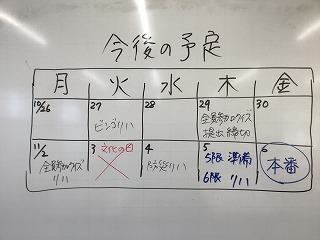 今後の予定
月 火 水 木 金
10/26 27 28 29 30
ビンゴリハ
全員参加クイズ
提出締切
11/2 3 文化の日 4 5 6
全員参加クイズ
リハ
防災リハ
5限 準備
6限 リハ
本番